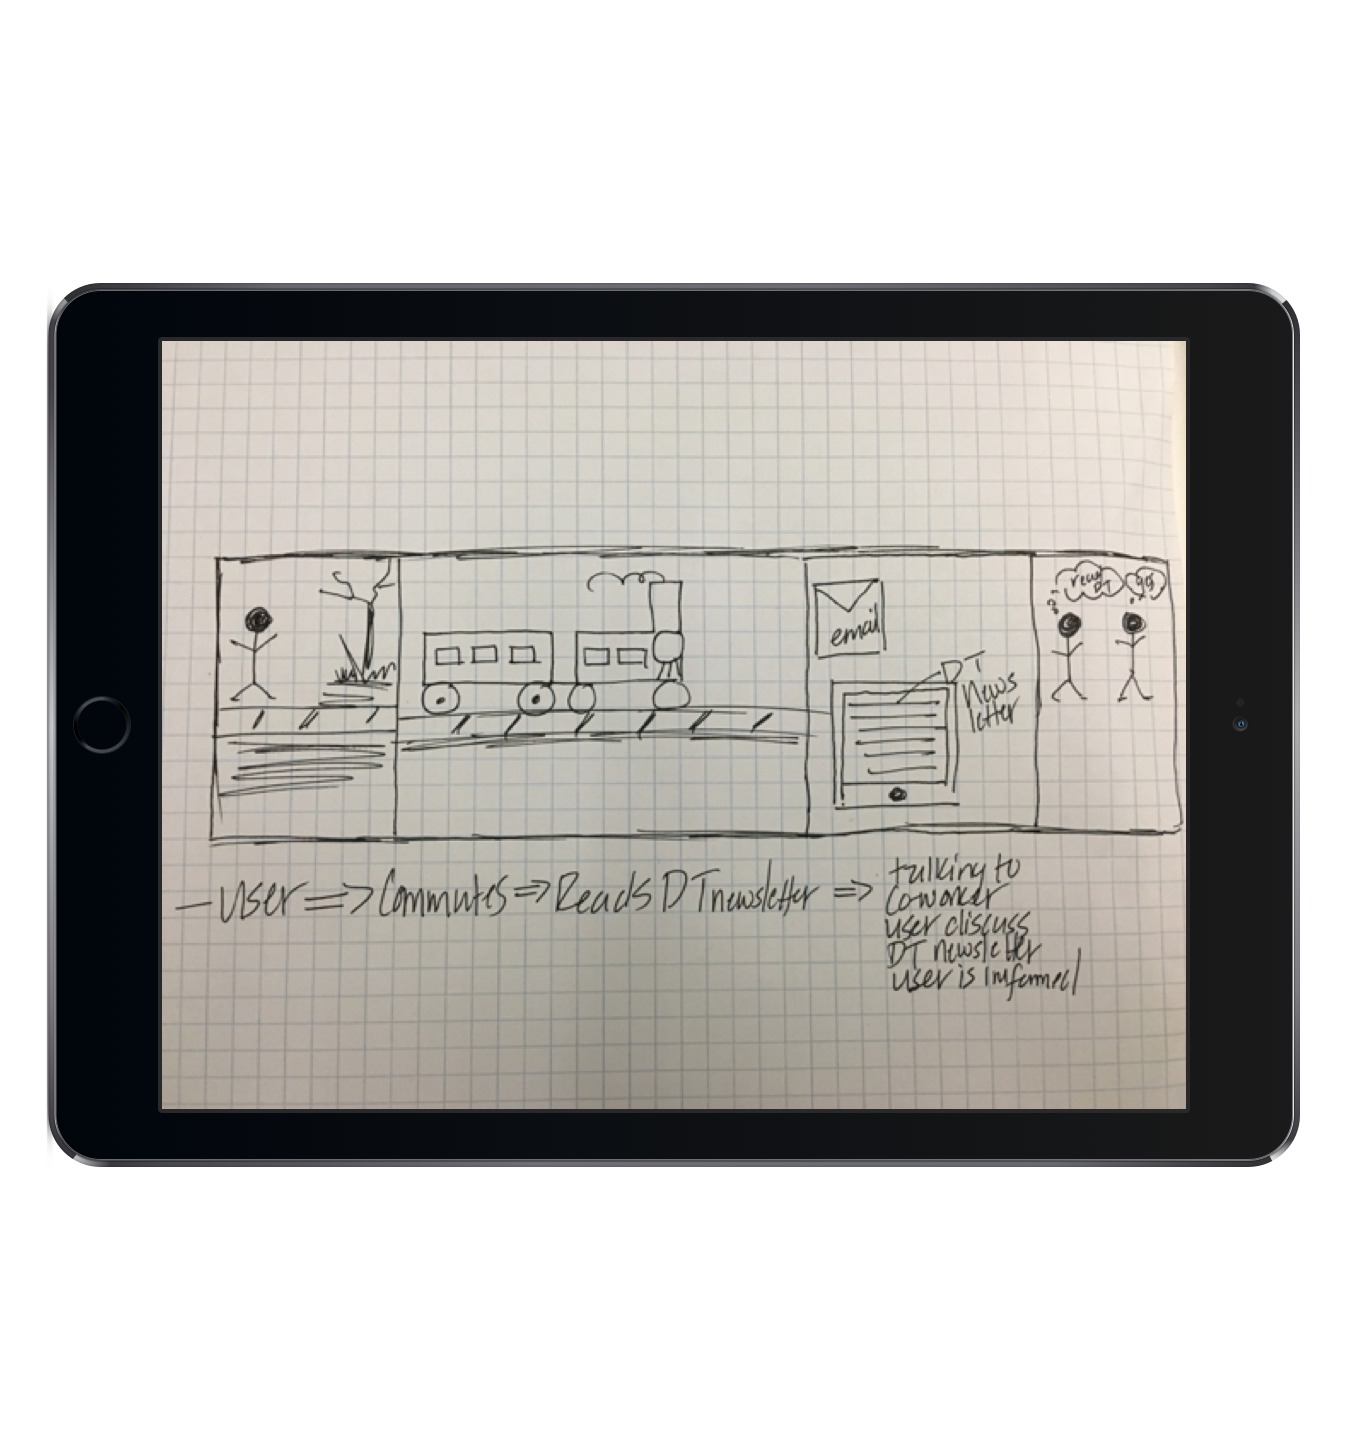 email
DT
News
letter
read
DT
— User => Commutes => Reads DT newsletter =>
talking to
coworker
user discuss
DT newsletter
user is informed